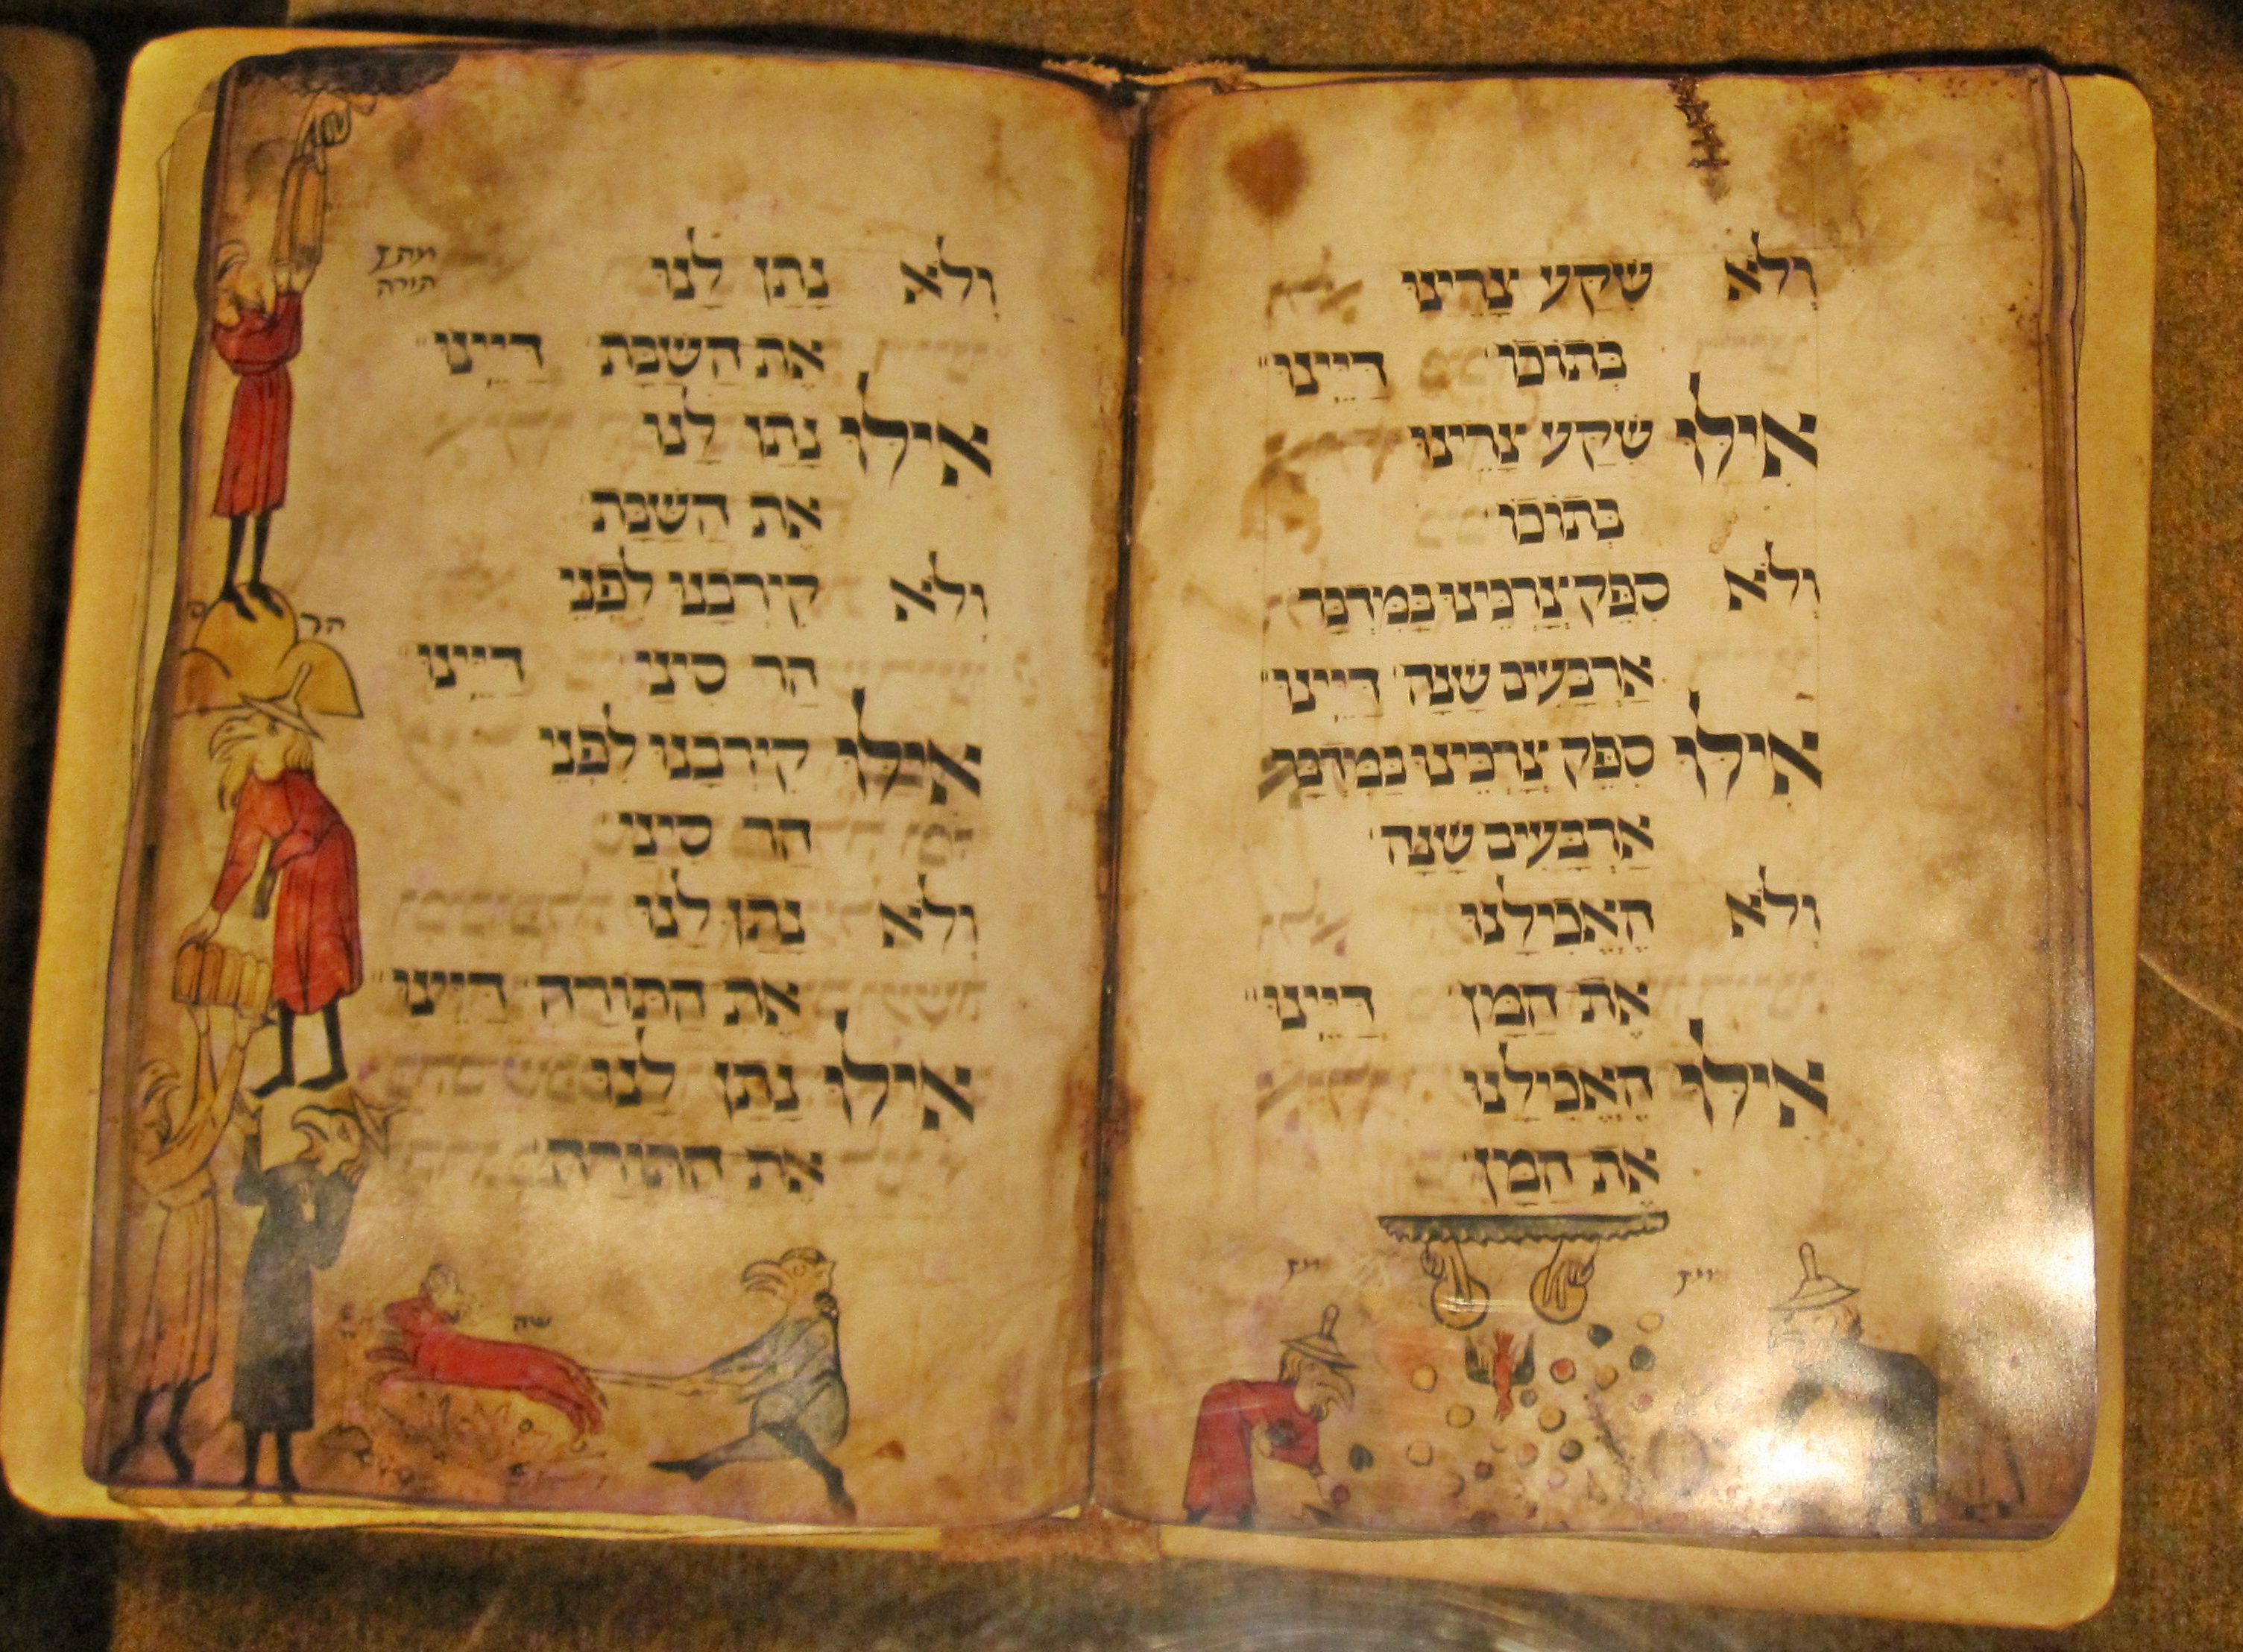 וְלֹא שִׁקַּע צָרֵינוּ
בְּתוֹכוֹ דַּיֵּינוּ
אִילּוּ שִׁקַּע צָרֵינוּ
בְּתוֹכוֹ
וְלֹא סִפֵּק צָרְכֵינוּ בַּמִּדְבָּר
אַרְבָּעִים שָׁנָה דַּיֵּינוּ
אִילּוּ סִפֵּק צָרְכֵינוּ בַּמִּדְבָּר
אַרְבָּעִים שָׁנָה
וְלֹא הֶאֱכִילָנוּ
אֶת הַמָּן דַּיֵּינוּ
אִילּוּ הֶאֱכִילָנוּ
אֶת הַמָּן
מן
מן
וְלֹא נָתַן לָנוּ
אֶת הַשַּׁבָּת דַּיֵּינוּ
אִילּוּ נָתַן לָנוּ
אֶת הַשַּׁבָּת
וְלֹא קֵירְבָנוּ לִפְנֵי
הַר סִינַי דַּיֵּינוּ
אִילּוּ קֵירְבָנוּ לִפְנֵי
הַר סִינַי
וְלֹא נָתַן לָנוּ
אֶת הַתּוֹרָה דַּיֵּינוּ
אִילּוּ נָתַן לָנוּ
אֶת הַתּוֹרָה
מתן
תורה
הר
שה